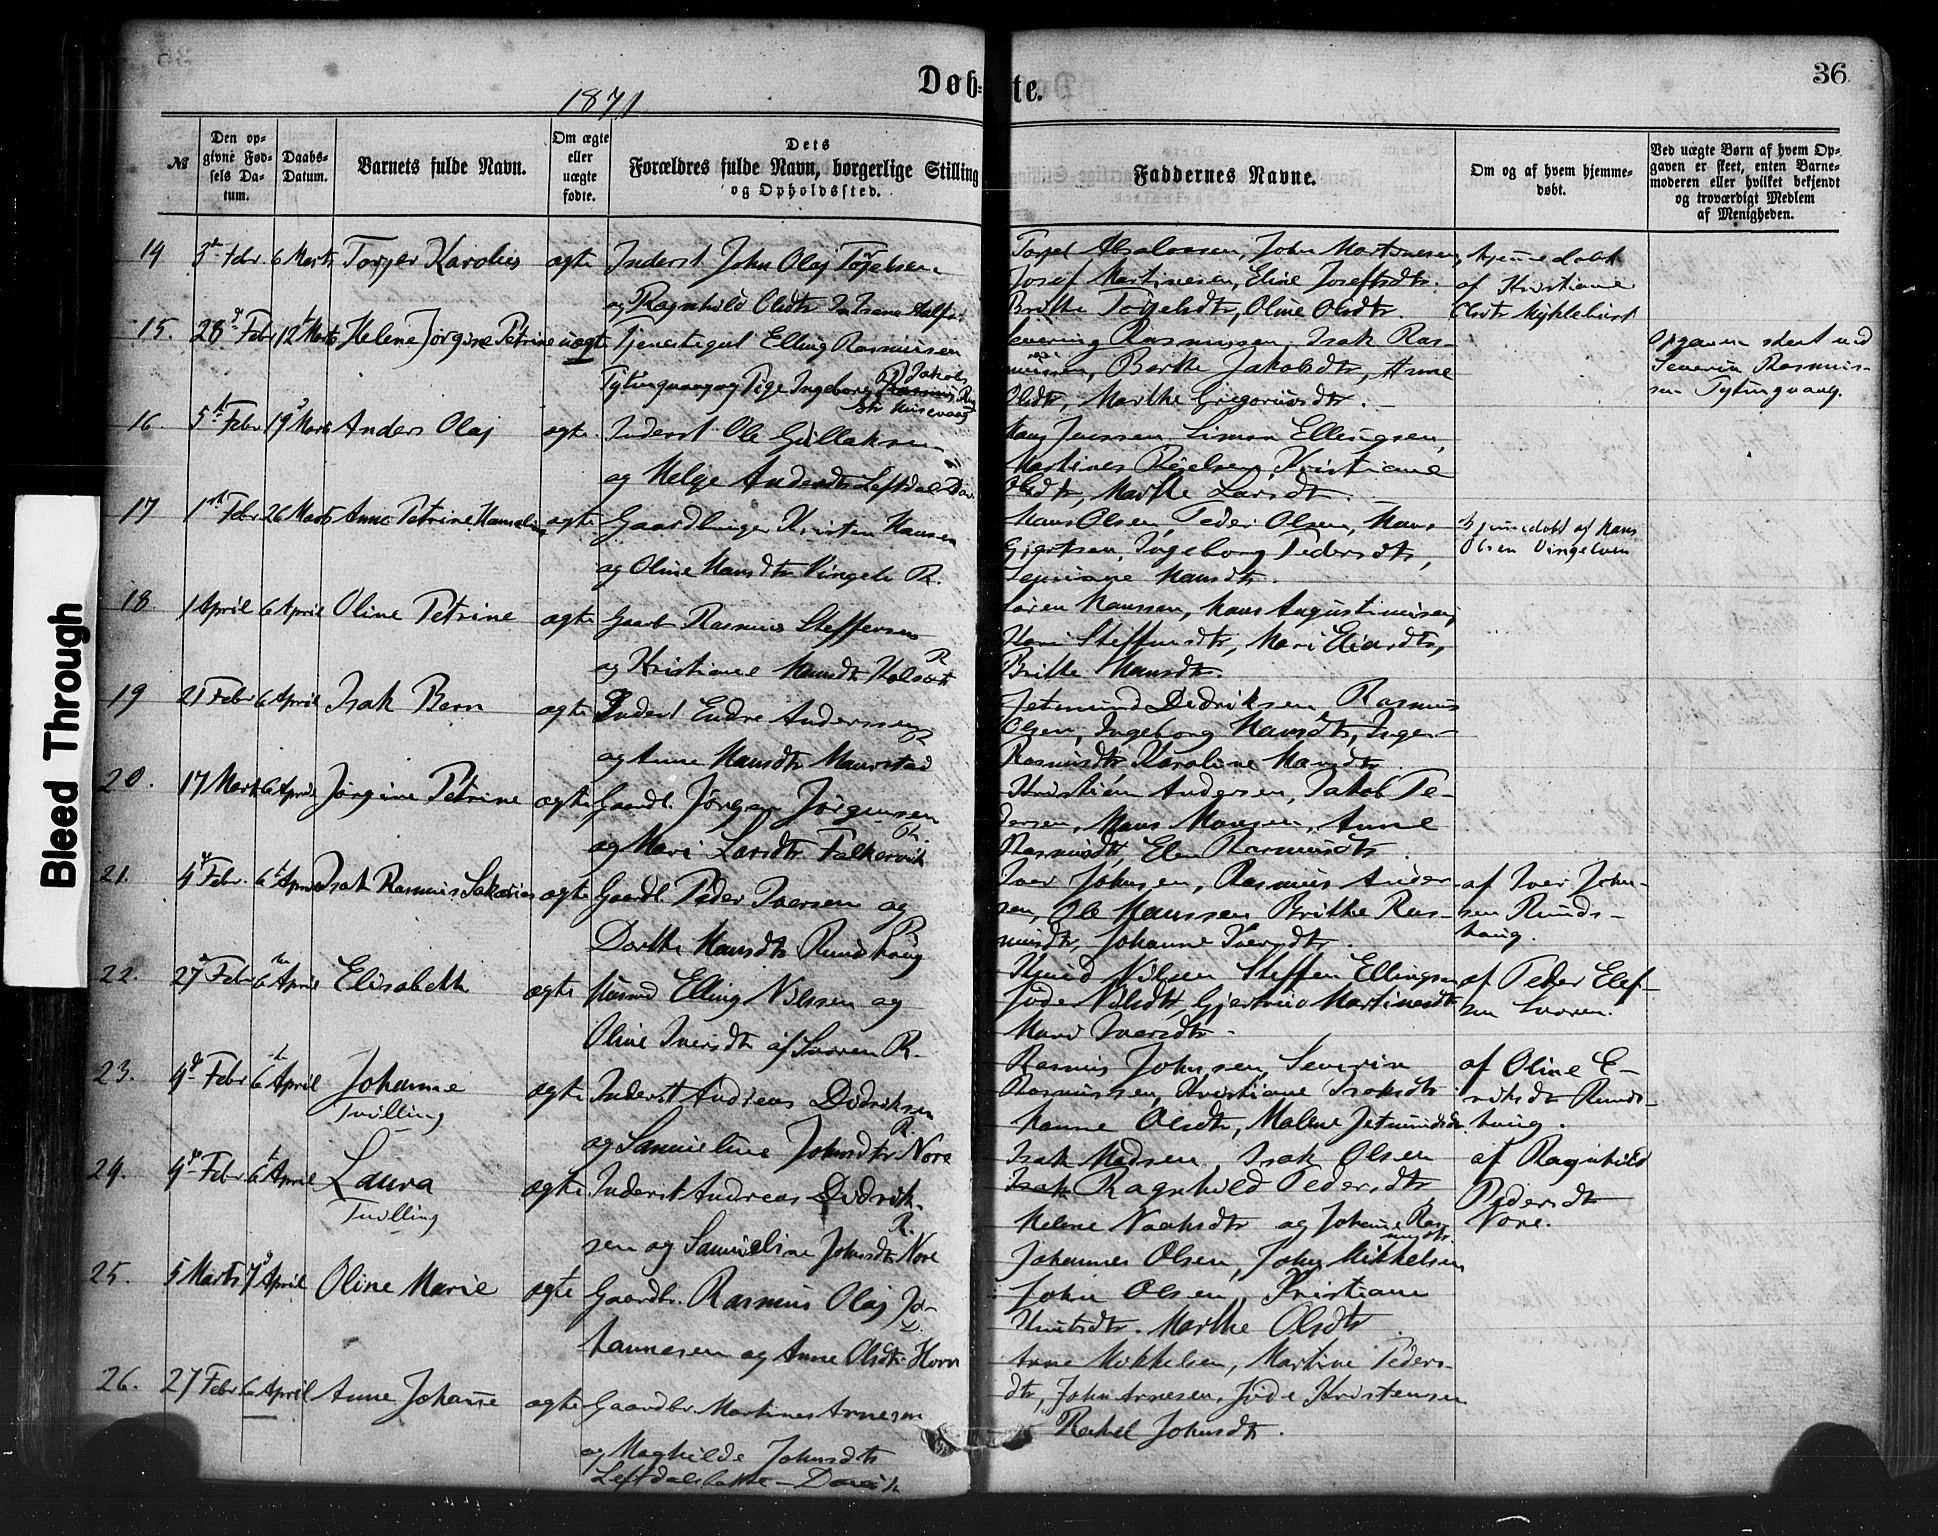 Døb=te.
36
1871
№
Den op=
givne Fød=
sels Da=
tum.
Daabs=
Datum.
Barnets fulde Navn.
Om ægte
eller
uægte
fødte.
Dets
Forældres fulde Navn, borgerlige Stilling
og Opholdssted.
Faddernes Navne.
Om og af hvem hjemme=
døbt.
Ved uægte Børn af hvem Op=
gaven er skeet, enten Barne=
moderen eller hvilket bekjendt
og troværdigt Medlem
af Menigheden.
14 3 Febr 6 Marts Torger Karolius ægte Inderst John Olaj
og Ragnhild Olsdtr
John Martinesen,
Josef Martinesen, Eline Josefsdtr.
Brithe Oline Olsdtr.
Hjemmedøbt
af Kristiane
Olsdtr Myklebust
15. 28 Febr 12 Marts Helene Jørgine Petrine uægte Tjenestegut Elling Rasmusen
Tytingvaag og Pige Ingeborg Jakobs
dtr Husevaag
Severing Rasmussen, Isak Ras-
mussen, Berthe Jakobsdtr, Anne
Olsdtr, Marthe Gregoriusdtr.
Opgaven skeet ved
Severin Rasmus-
sen Tytingvaag.
16. 5 Febr 19 Marts Anders Olaj ægte. Inderst Ole Gullaksen
og Helge Andersdtr Leftdal
Hans Jenssen Simon Ellingsen,
Martines Kristiane
Olsdtr, Marthe Larsdtr.
17 1 Febr 26 Marts Anne Petrine ægte Gaardbruger Kristen Hansen
og Oline Hansdtr Vingelv R.
Hans Olsen Peder Olsen, Hans
Gjertsen, Ingeborg Pedersdtr,
Hansdtr.
Hjemmedøbt af Hans
Olsen Vingelven
18 1 April 6 April Oline Petrine ægte Gaardb Rasmus Steffensen
og Kristiane Hansdtr R
Søren Hanssen, Hans Augustinusen,
Kari Steffensdtr, Mari Eliasdtr,
Brithe Hansdtr.
19 21 Febr 6 April Isak Bern ægte Inderst Endre Anderssen
og Anne Hansdtr Maurstad R
Jetmund Dedriksen, Rasmus
Olsen, Ingeborg Hansdtr, Inger
Rasmusdtr Karoline Hansdtr.
20. 17 Marts 6 April Jørgine Petrine ægte Gaardb. Jørgen Jørgensen
og Mari Larsdtr. Falkevik
Kristian Andersen, Jakob Pe-
dersen, Hans Hansen, Anne
Rasmusdtr, Elen Rasmusdtr.
21. 4 Febr. 6 April Isak Rasmus Sakarias ægte Gaardb. Peder Iversen og
Dorthe Hansdtr Rundhoug R
Iver Johnsen, Rasmus Ander
sen, Ole Hanssen Brithe Ras-
musdtr, Johanne Iversdtr.
af Iver John-
sen Runds-
houg.
22. 27 Febr 6 April Elisabeth ægte Husmd Elling Nilssen og
Oline Iversdtr af Svoren R.
Knud Nilsen Steffen Ellingsen
Jøde Nilsdtr, Gjertrud Martinesdtr
Mari Iversdtr.
af Peder Elef-
sen Svoren.
23. 9 Febr 6 April Johanne ægte Inderst Andreas Didriksen
Tvilling og Samueline Johnsdtr Nore R.
Rasmus Johnsen, Severin
Rasmussen, Kristiane Isaksdtr
Hanne Olsdtr, Malene Jetmundsdtr.
af Oline E-
riksdtr Runds-
houg.
24. 9 Febr 6 April Laura ægte Inderst Andreas Didrik-
Tvilling sen og Samueline Johnsdtr Nore R.
Isak Madsen, Isak Olsen
Isak Ragnhild Pedersdtr
Helene Naahsdtr og Johanne Ras
musdtr.
af Ragnhild
Pedersdtr
Nore.
25. 5 Marts 7 April Oline Marie ægte Gaardbr. Rasmus Olaj Jo-
hannesen og Anne Olsdtr Horn
Johannes Olsen, John Mikkelsen
John Olsen, Kristiane
Knutsdtr. Marthe Olsdtr.
26. 27 Febr 6 April Anne Johanne ægte Gaardbr Martines Arnesen
og Maghilde Johnsdtr
Leftdalsbakke - Davik
Arne Mikkelsen, Martine Peders-
dtr, John Arnesen, Jøde Kristensen
Rakel Johnsdtr.
Bleed Through